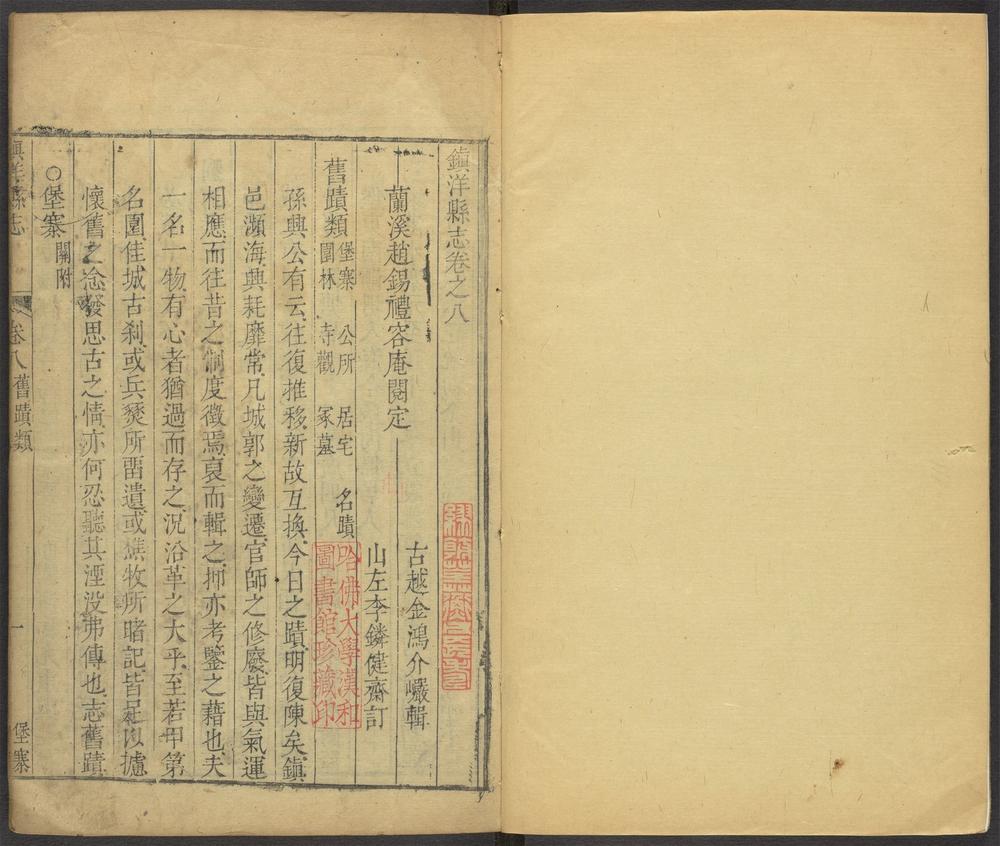 鎮洋縣志卷之八
古越金鴻介巗輯
蘭溪趙錫禮容庵閱定
山左李鏻健齋訂
舊蹟類 堡寨 公所 居宅 名蹟
園林 寺觀 冢墓
哈佛大學漢和
圖書館珍藏印
孫興公有云往復推移新故互換今日之蹟明復陳矣鎮
邑瀕海興耗靡常凡城郭之變遷官師之修廢皆與氣運
相應而往昔之制度徵焉裒而輯之抑亦考鑒之藉也夫
一名一物有心者猶過而存之況沿革之大乎至若甲第
名園佳城古刹或兵燹所畱遺或樵牧所睹記皆足以攄
懷舊之念發思古之情亦何忍聽其湮没弗傳也志舊蹟
○堡寨 關附
鎮洋縣志 卷八舊蹟類 一 堡寨